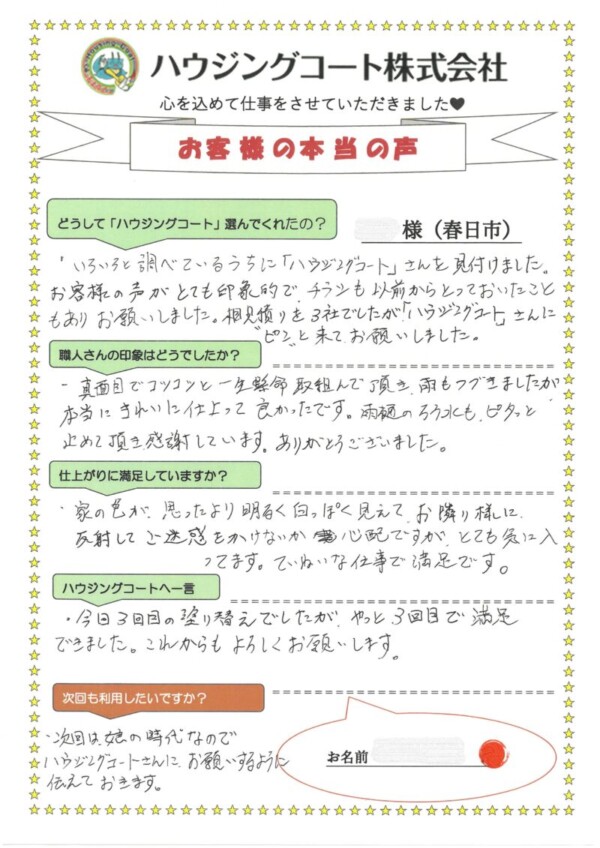 ハウジングコート株式会社
心を込めて仕事をさせていただきました♥
お客様の本当の声
どうして「ハウジングコート」選んでくれたの？
様（春日市）
・いろいろと調べているうちに「ハウジングコート」さんを見付けました。
お客様の声がとても印象的で、チラシも以前からとっておいたこと
もありお願いしました。相見積りを3社でしたが「ハウジングコート」さんに
"ピン"と来てお願いしました。
職人さんの印象はどうでしたか？
・真面目でコツコツと一生懸命取組んで頂き、雨もつづきましたが
本当にきれいに仕上って良かったです。雨樋のろう水も、ピタッと
止めて頂き感謝しています。ありがとうございました。
仕上がりに満足していますか？
・家の色が、思ったより明るく白っぽく見えて、お隣り様に
反射してご迷惑をかけないか心配ですが、とても気に入
ってます。ていねいな仕事で満足です。
ハウジングコートへ一言
・今日3回目の塗り替えでしたが、やっと3回目で満足
できました。これからもよろしくお願いします。
次回も利用したいですか？
・次回は、娘の時代なので
ハウジングコートさんに、お願いするように
伝えておきます。
お名前